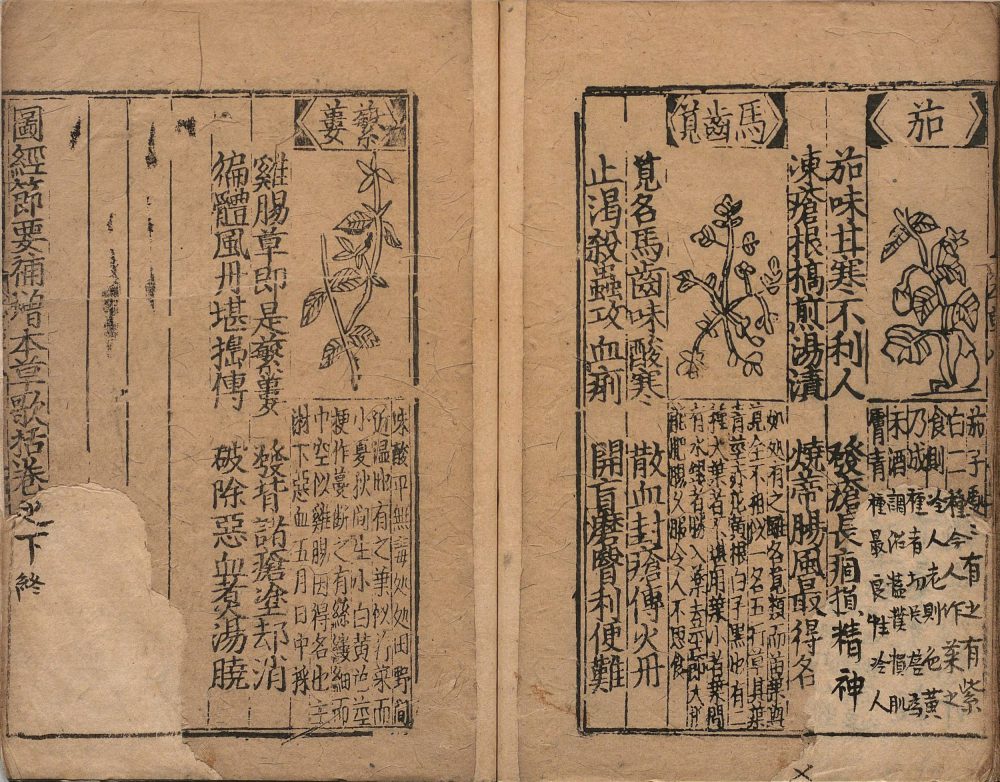 茄
茄味甘寒不利人
發瘡長痼損精神
凍瘡根槁煎湯漬
燒齋腸風最得名
茄子處〻有之有紫
白二種今人作菜之
食則冷人老則色黃
乃成種者切片
末酒調治𢷤撲損肌
膚青種最良性冷人
馬齒筧
筧名馬齒味酸寒
散血封瘡傅火丹
止渴殺蟲攻血痢
開盲磨瞖利便難
処処有之雖名筧類而苗葉與
筧全不相似一名五行草其葉
青莖赤花黄根白子黑也有二
種大葉者不堪用葉小者葉間
有水銀者勝入藥去莖
能肥腸久服令人不思食
蘩蔞
味酸平無毒処処田野間
近湿地有之葉似荇菜而
小夏秋間生小白黄色莖
梗作蔓断之有絲縷細而
中空似雞腸因得名也主
下惡血五月日中採
雞腸草即是蘩蔞
發背諸瘡塗却消
徧體風丹堪搗傅
破除惡血煮湯曉
圖經節要補增本草歌括卷之下終